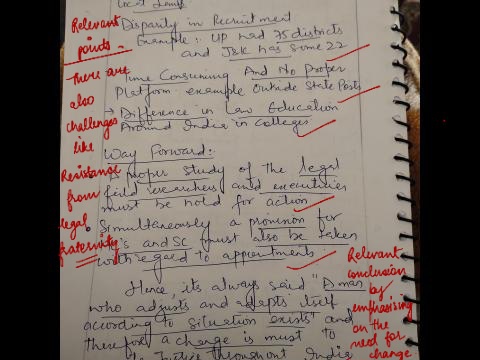 Disparity in Recruitment
Example:- UP had 75 districts
and J&K has some 22
Time Consuming And No Proper
Platform example Outside State Posts
→ Difference in Law Education
Around India in Colleges
Way Forward:-
A proper study of the legal
field and executives
must be hold for action
Simultaneously a provision for
and SC must also be taken
with regard to appointments
Hence, its always said "A man
who adjusts and adapts itself
according to situation exists" and
therefore a change is must to
Justice throughout India
Relevant
points -
There are
also
challenges
like
Resistance
from
legal
fraternity
Relevant
conclusion
by
emphasising
on the
need for
change